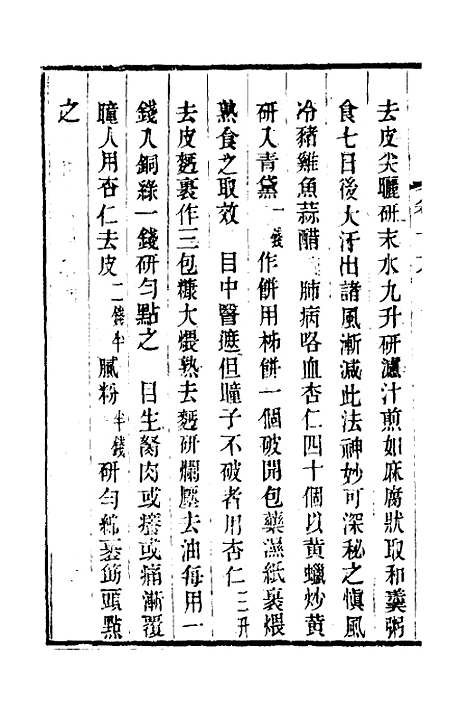 去皮尖曬研末水九升研濾汁煎如麻腐狀取和羹粥
食七日後大汗出諸風漸減此法神妙可深秘之慎風
冷豬雞魚蒜醋　肺病咯血杏仁四十個以黃蠟炒黃
研入青黛一錢作餅用柿餅一個破開包藥濕紙裹煨
熟食之取效　目中翳遮但瞳子不破者用杏仁三升
去皮麪裹作三包糠火煨熟去麪研爛壓去油每用一
錢入銅綠一錢研勻點之　目生胬肉或癢或痛漸覆
瞳人用杏仁去皮二錢半膩粉半錢研勻綿裹筯頭點
之